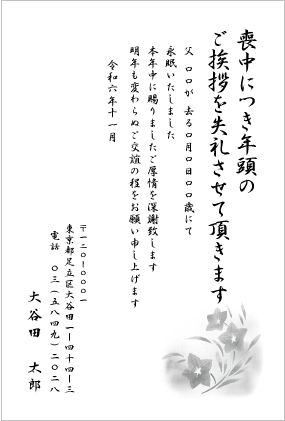 喪中につき年頭の
ご挨拶を失礼させて頂きます
父 〇〇が 去る〇月〇日〇〇歳にて
永眠いたしました
本年中に賜りましたご厚情を深謝致します
明年も変わらぬご交誼の程をお願い申し上げます
令和六年十一月
〒一二〇-〇〇〇一
東京都足立区大谷田一-四十四-三
電話 〇三(五八四九)二〇二八
大谷田 太郎